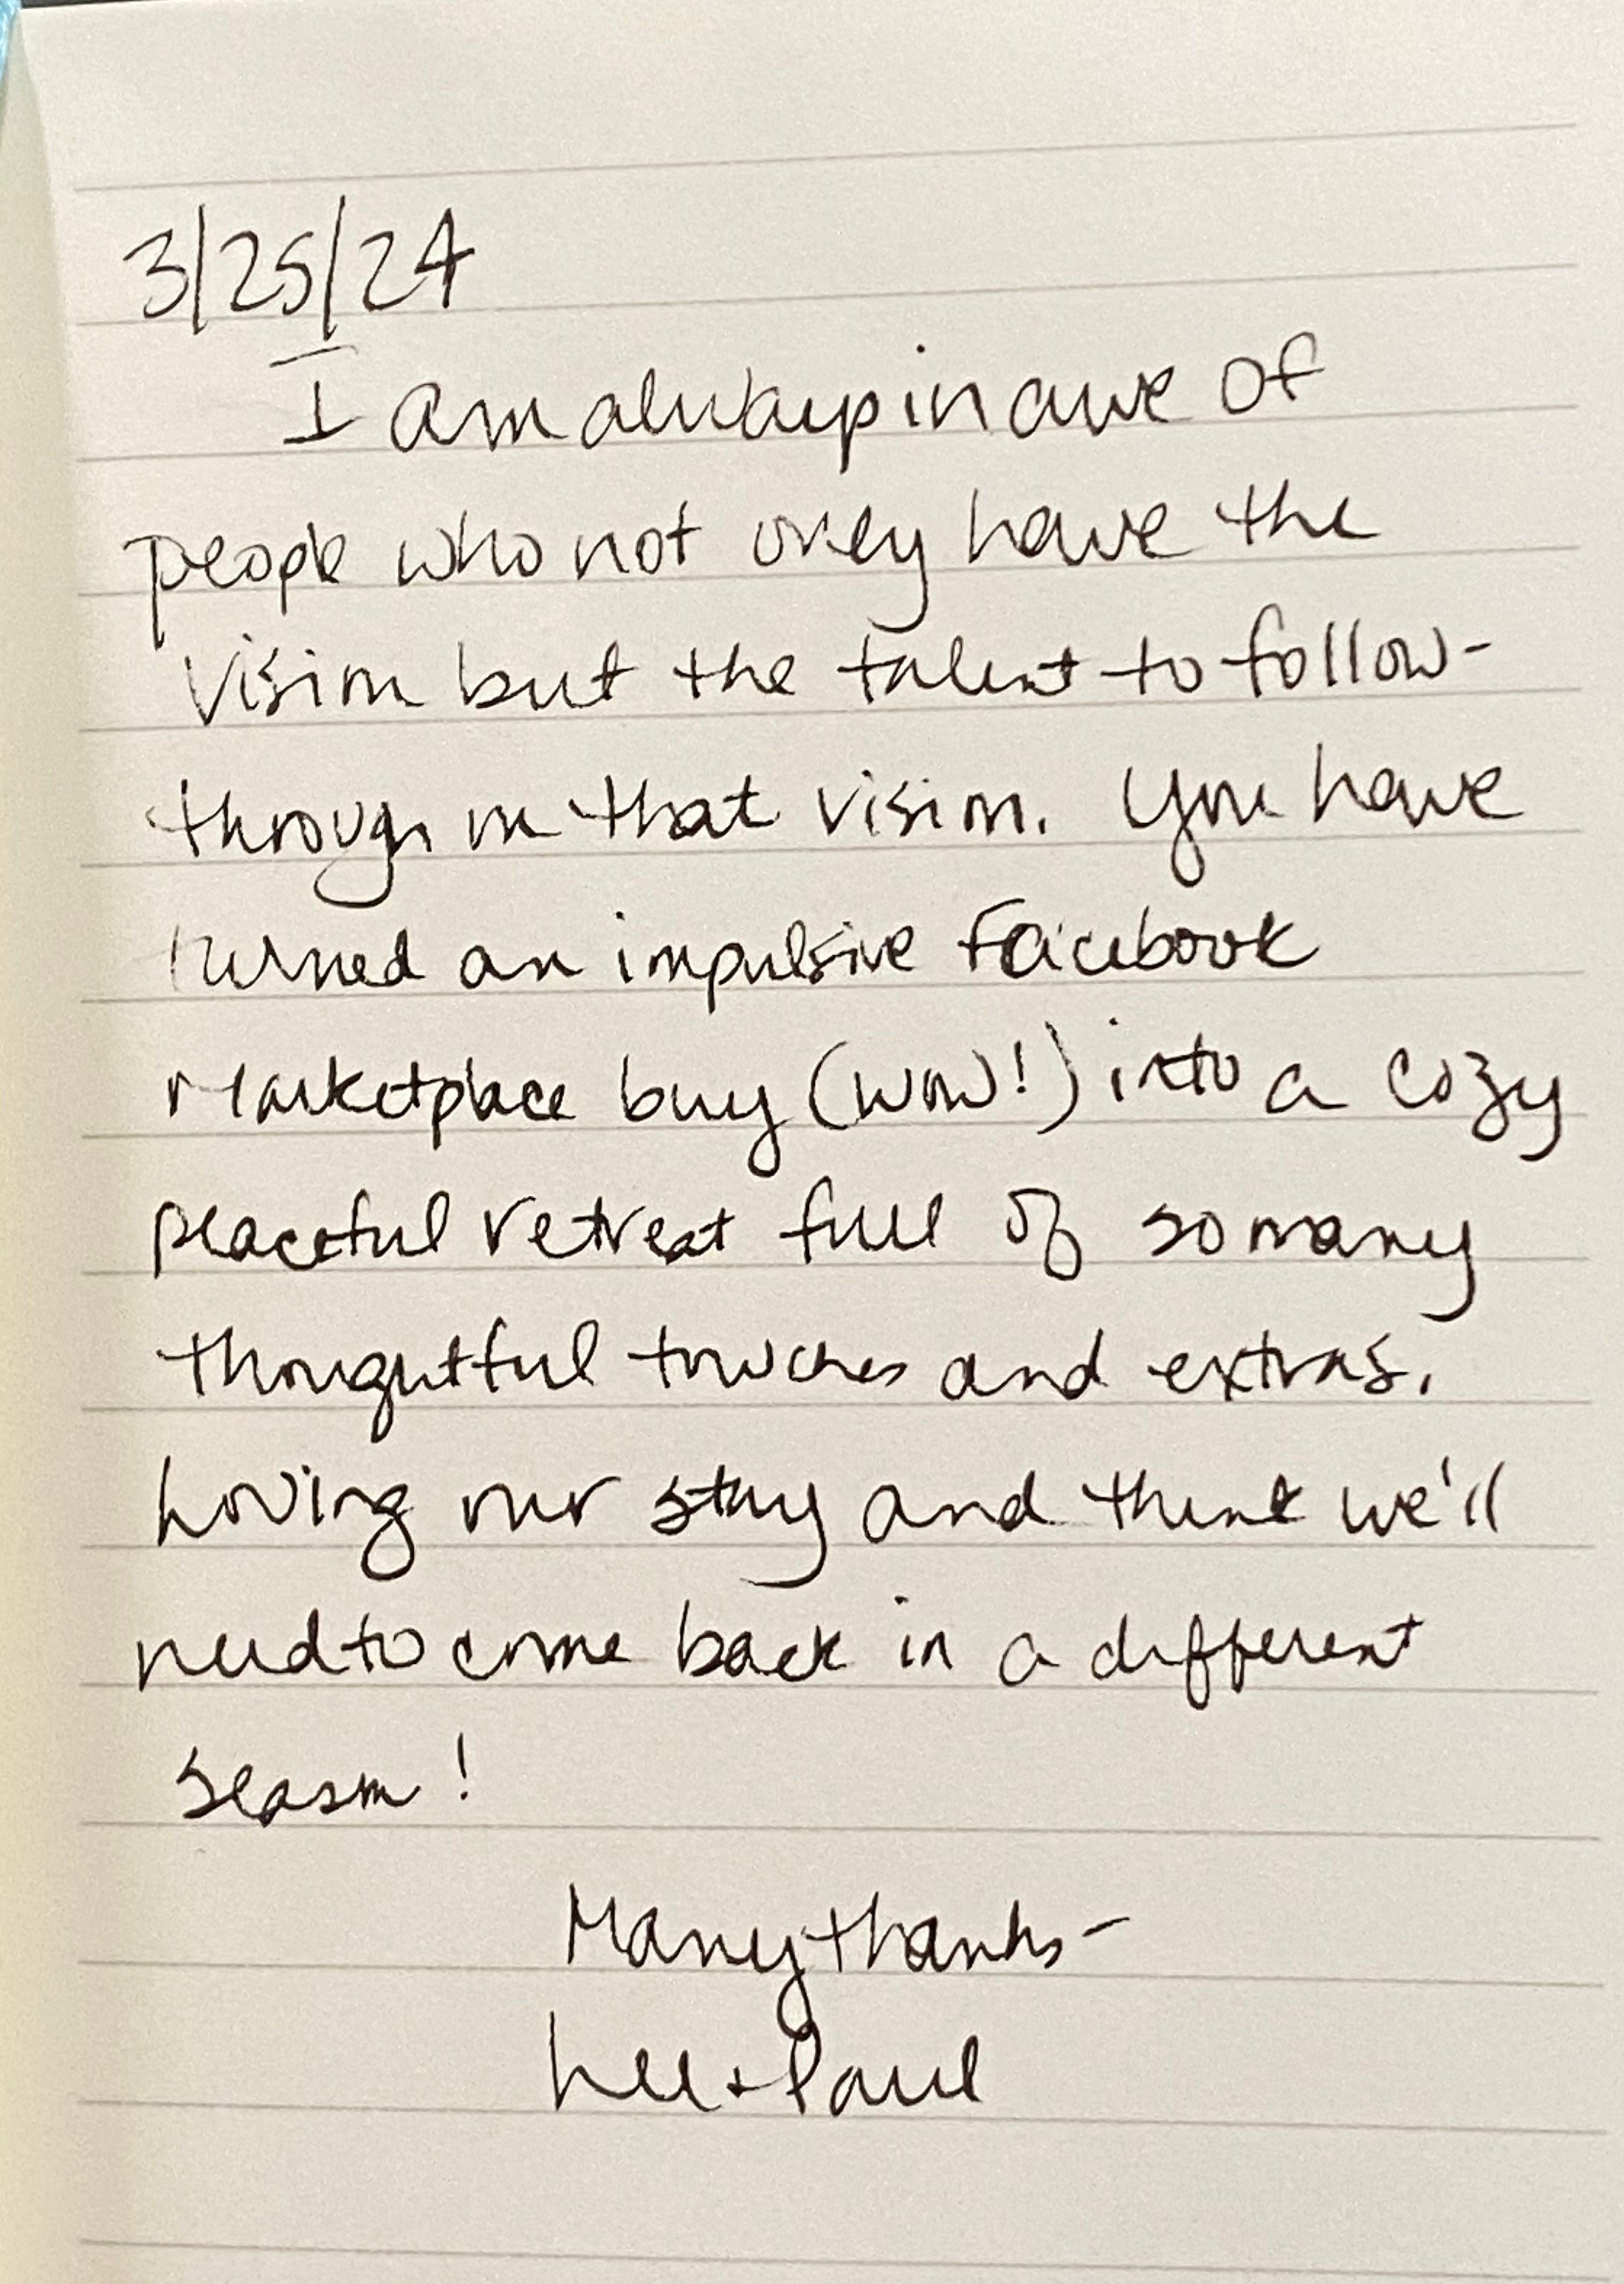 3/25/24
I am always in awe of
people who not only have the
vision but the talent to follow-
through on that vision. You have
turned an impulsive Facebook
Marketplace buy (wow!) into a cozy
peaceful retreat full of so many
thoughtful touches and extras.
Loving our stay and think we'll
need to come back in a different
season!
Many thanks-
Lee + Paul